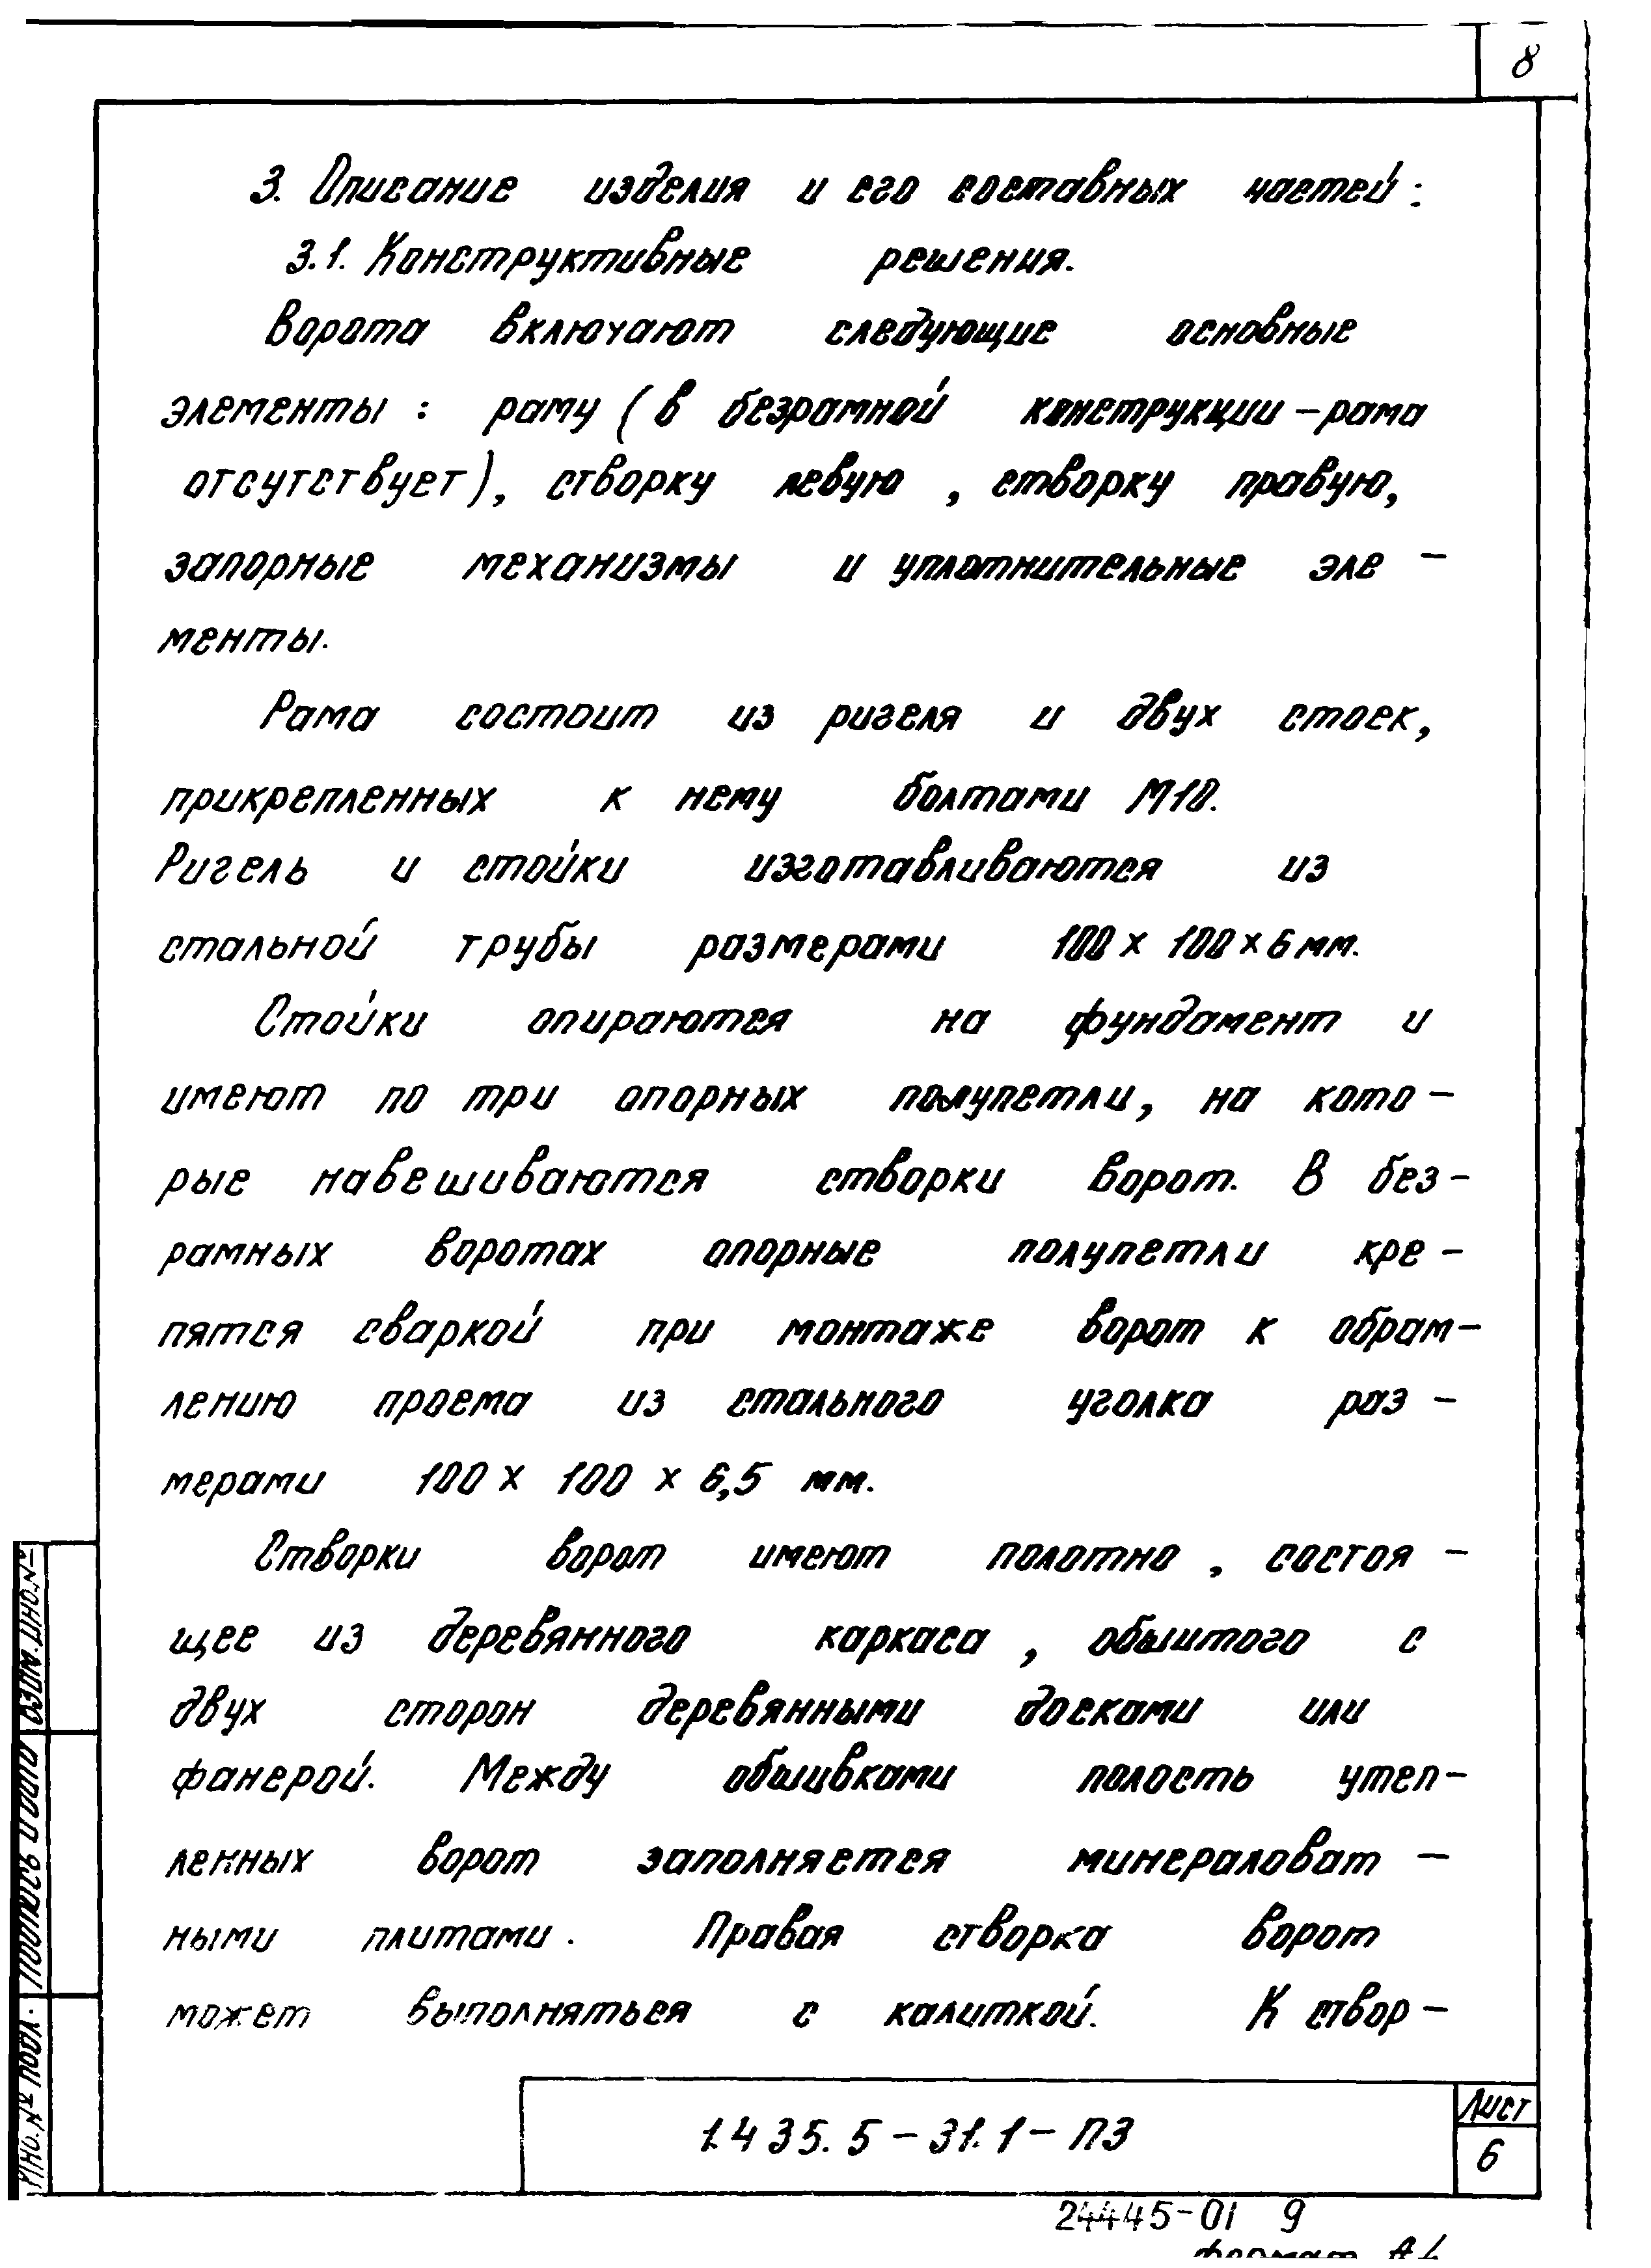 8
3. Описание изделия и его составных частей:
3.1. Конструктивные решения.
Ворота включают следующие основные
элементы: раму (в безрамной конструкции – рама
отсутствует), створку левую, створку правую,
запорные механизмы и уплотнительные эле-
менты.
Рама состоит из ригеля и двух стоек,
прикрепленных к нему болтами М10.
Ригель и стойки изготавливаются из
стальной трубы размерами 100 х 100 х 6 мм.
Стойки опираются на фундамент и
имеют по три опорных полупетли, на кото-
рые навешиваются створки ворот. В без-
рамных воротах опорные полупетли кре-
пятся сваркой при монтаже ворот к обрам-
лению проема из стального уголка раз-
мерами 100 х 100 х 6,5 мм.
Створки ворот имеют полотно, состоя-
щее из деревянного каркаса, обшитого с
двух сторон деревянными досками или
фанерой. Между обшивками полость утеп-
ленных ворот заполняется минераловат-
ными плитами. Правая створка ворот
может выполняться с калиткой. К створ-
Инв. № подл. Подпись и дата Взам. инв. №
1.435.5-31.1-ПЗ
Лист
6
24445-01 9
формат А4